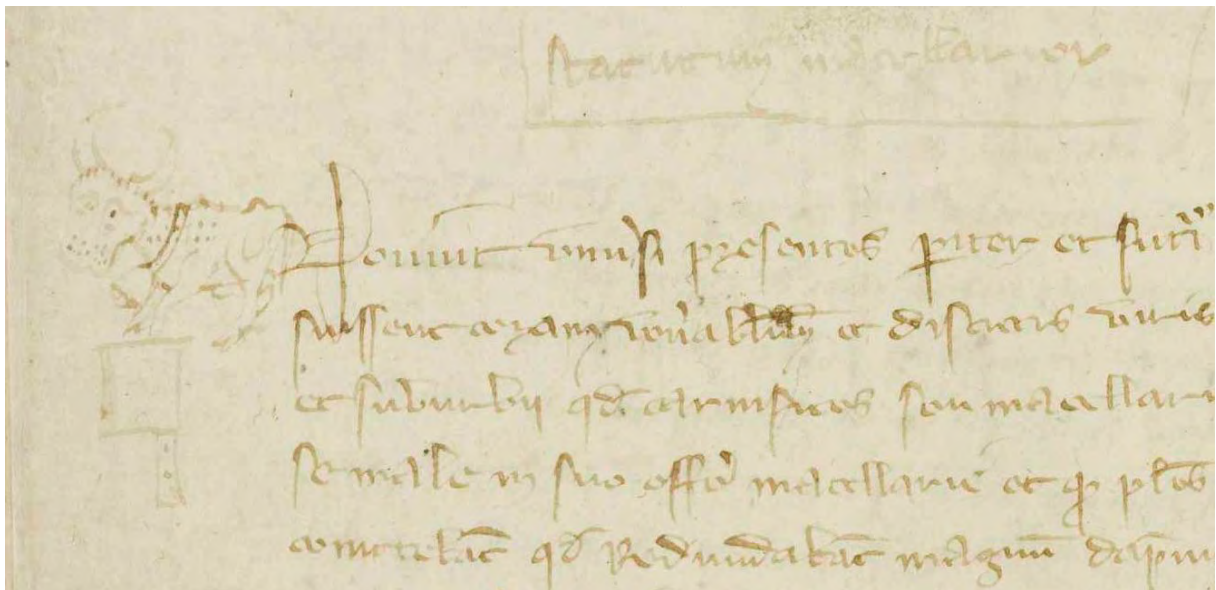 Statutum macellarior
Noverint univsi presentes pariter et futuri
fuissent coram venerabilibus et discretis viris
et suburbii qd carnifices seu macellarii
se male in suo offo macellarie et qr ples
comictebāt qd Redundabāt magnū dāpnu